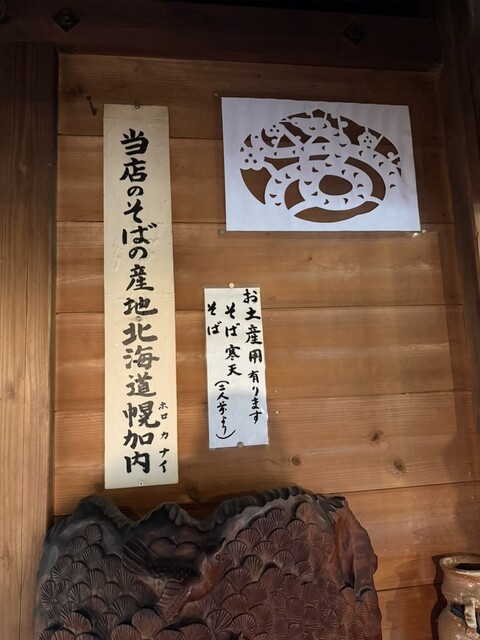 当店のそばの産地北海道幌加内
ホロカナイ
お土産用有ります
そば寒天
そば(三人前より)